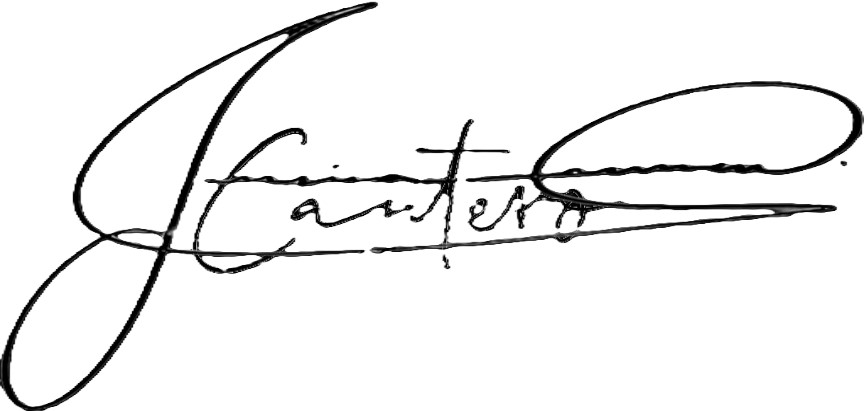 J Cantero